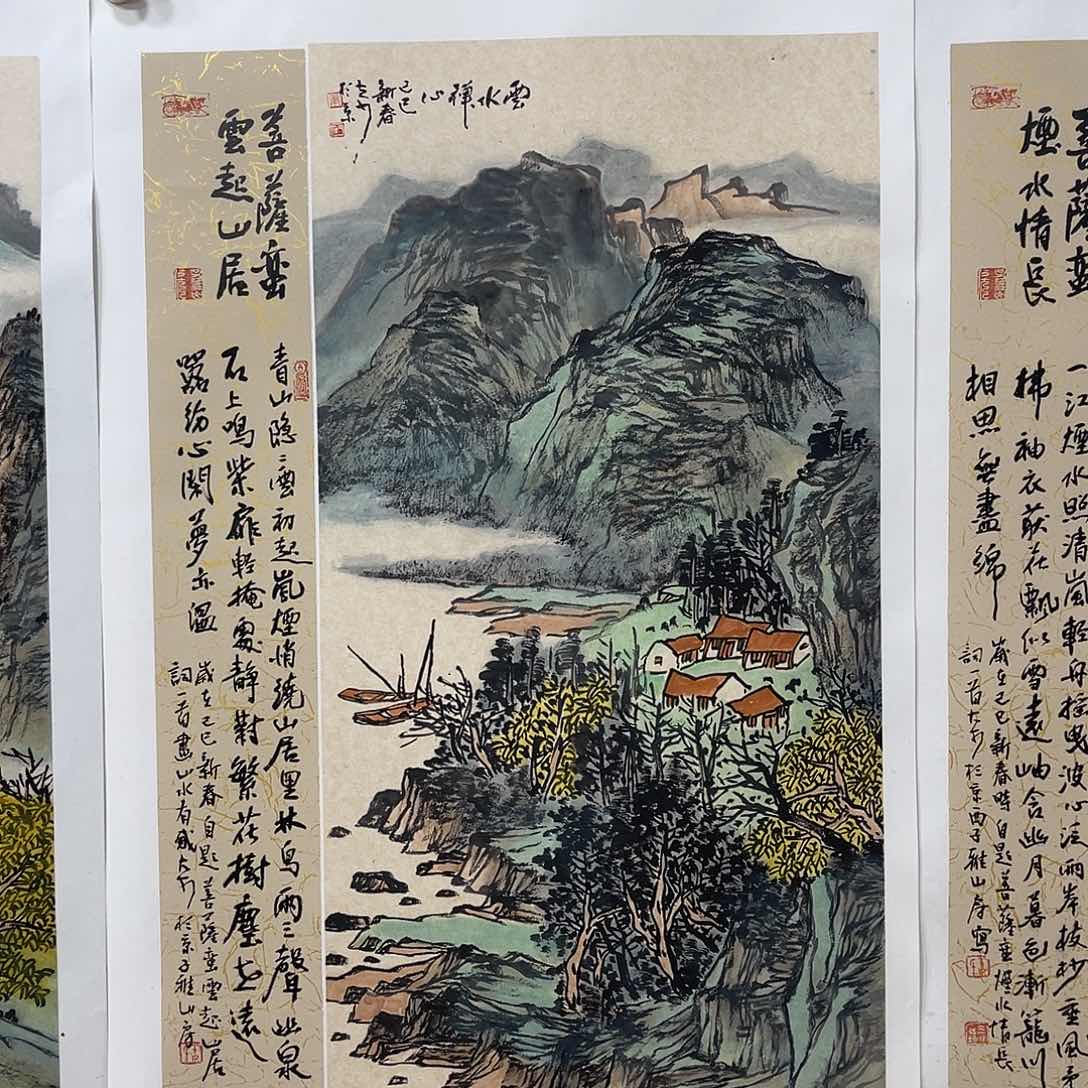 雲水禪心
乙巳
新春
於京
菩薩蠻
雲起山居
青山隐〻雲初起嵐煙悄繞山居里林鳥兩三聲幽泉
石上鳴柴扉輕掩處靜對繁花樹塵世遠
囂紛心閑夢亦溫
歲在乙巳新春自題菩薩蠻雲起山居
詞一首畫山水有感大於京子雅山房
菩薩蠻
煙水情長
一江煙水照清嵐輕舟搖曳波心兩岸枝抄垂風
拂袖衣荻花飄似雪遠岫含幽月暮色漸籠川
相思無盡綿
歲在乙巳新春時自題菩薩蠻煙水情長
詞一首大於京西子雅山房寫